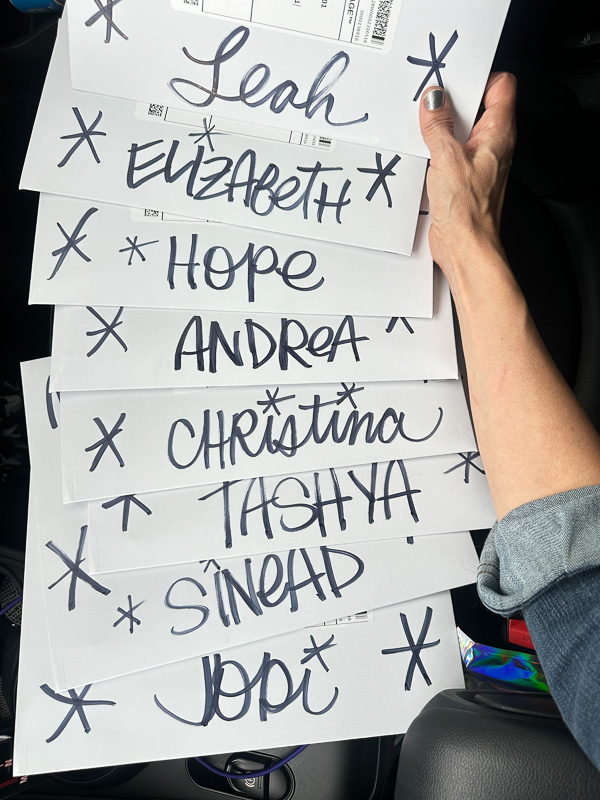 Leah
ELIZABETH
HOPE
ANDREA
CHRistina
TASHYA
SiNEAD
JODi